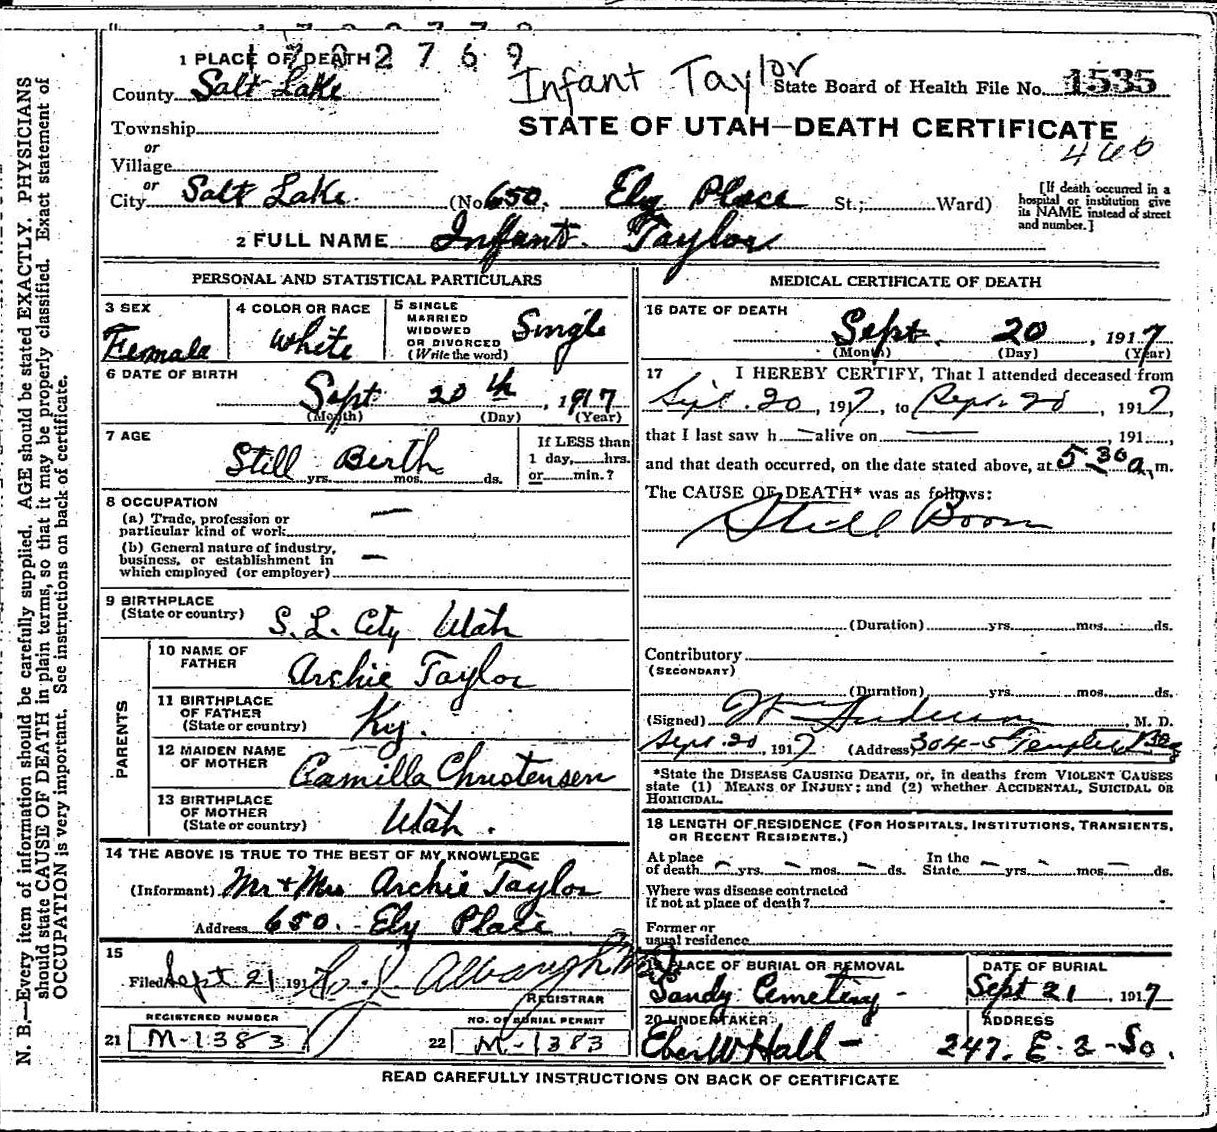 1 PLACE OF DEATH 1702769
Infant Taylor
State Board of Health File No. 1535
County Salt Lake
STATE OF UTAH—DEATH CERTIFICATE
Township
or
Village
or
City Salt Lake. (No. 650, Ely Place St.; Ward)
[If death occurred in a hospital or institution give its NAME instead of street and number.]
2 FULL NAME Infant. Taylor
PERSONAL AND STATISTICAL PARTICULARS
3 SEX
Female
4 COLOR OR RACE
White
5 SINGLE
MARRIED
WIDOWED
OR DIVORCED
(Write the word)
Single
6 DATE OF BIRTH
Sept 20th, 1917
(Month) (Day) (Year)
7 AGE
Still Birth
yrs. mos. ds.
If LESS than
1 day, hrs.
or min.?
8 OCCUPATION
(a) Trade, profession or
particular kind of work —
(b) General nature of industry,
business, or establishment in
which employed (or employer) —
9 BIRTHPLACE
(State or country)
S. L. City Utah
PARENTS
10 NAME OF
FATHER
Archie Taylor
11 BIRTHPLACE
OF FATHER
(State or country)
Ky.
12 MAIDEN NAME
OF MOTHER
Camilla Christensen
13 BIRTHPLACE
OF MOTHER
(State or country)
Utah.
14 THE ABOVE IS TRUE TO THE BEST OF MY KNOWLEDGE
(Informant) Mr + Mrs Archie Taylor
Address 650. Ely Place
15
Filed Sept 21 191
REGISTRAR
REGISTERED NUMBER
21 M-1383
NO. OF BURIAL PERMIT
22 M-1383
MEDICAL CERTIFICATE OF DEATH
16 DATE OF DEATH
Sept. 20, 1917
(Month) (Day) (Year)
17 I HEREBY CERTIFY, That I attended deceased from
Sept. 20, 1917, to Sept. 20, 1917,
that I last saw h — alive on —, 191 ,
and that death occurred, on the date stated above, at 5 30 a, m.
The CAUSE OF DEATH* was as follows:
Still Born
(Duration) yrs. mos. ds.
Contributory
(SECONDARY)
(Duration) yrs. mos. ds.
(Signed) Anderson, M. D.
Sept. 20, 1917 (Address) 304-5 Templeton Bldg
*State the DISEASE CAUSING DEATH, or, in deaths from VIOLENT CAUSES
state (1) MEANS OF INJURY; and (2) whether ACCIDENTAL, SUICIDAL OR
HOMICIDAL.
18 LENGTH OF RESIDENCE (FOR HOSPITALS, INSTITUTIONS, TRANSIENTS,
OR RECENT RESIDENTS.)
At place
of death — yrs. — mos. — ds. In the
State — yrs. - mos. — ds.
Where was disease contracted
if not at place of death?
Former or
usual residence
PLACE OF BURIAL OR REMOVAL
Sandy Cemetery -
DATE OF BURIAL
Sept 21, 1917
20 UNDERTAKER
Eber W Hall —
ADDRESS
247. E. 2 - So.
READ CAREFULLY INSTRUCTIONS ON BACK OF CERTIFICATE
N. B.—Every item of information should be carefully supplied. AGE should be stated EXACTLY. PHYSICIANS
should state CAUSE OF DEATH in plain terms, so that it may be properly classified. Exact statement of
OCCUPATION is very important. See instructions on back of certificate.